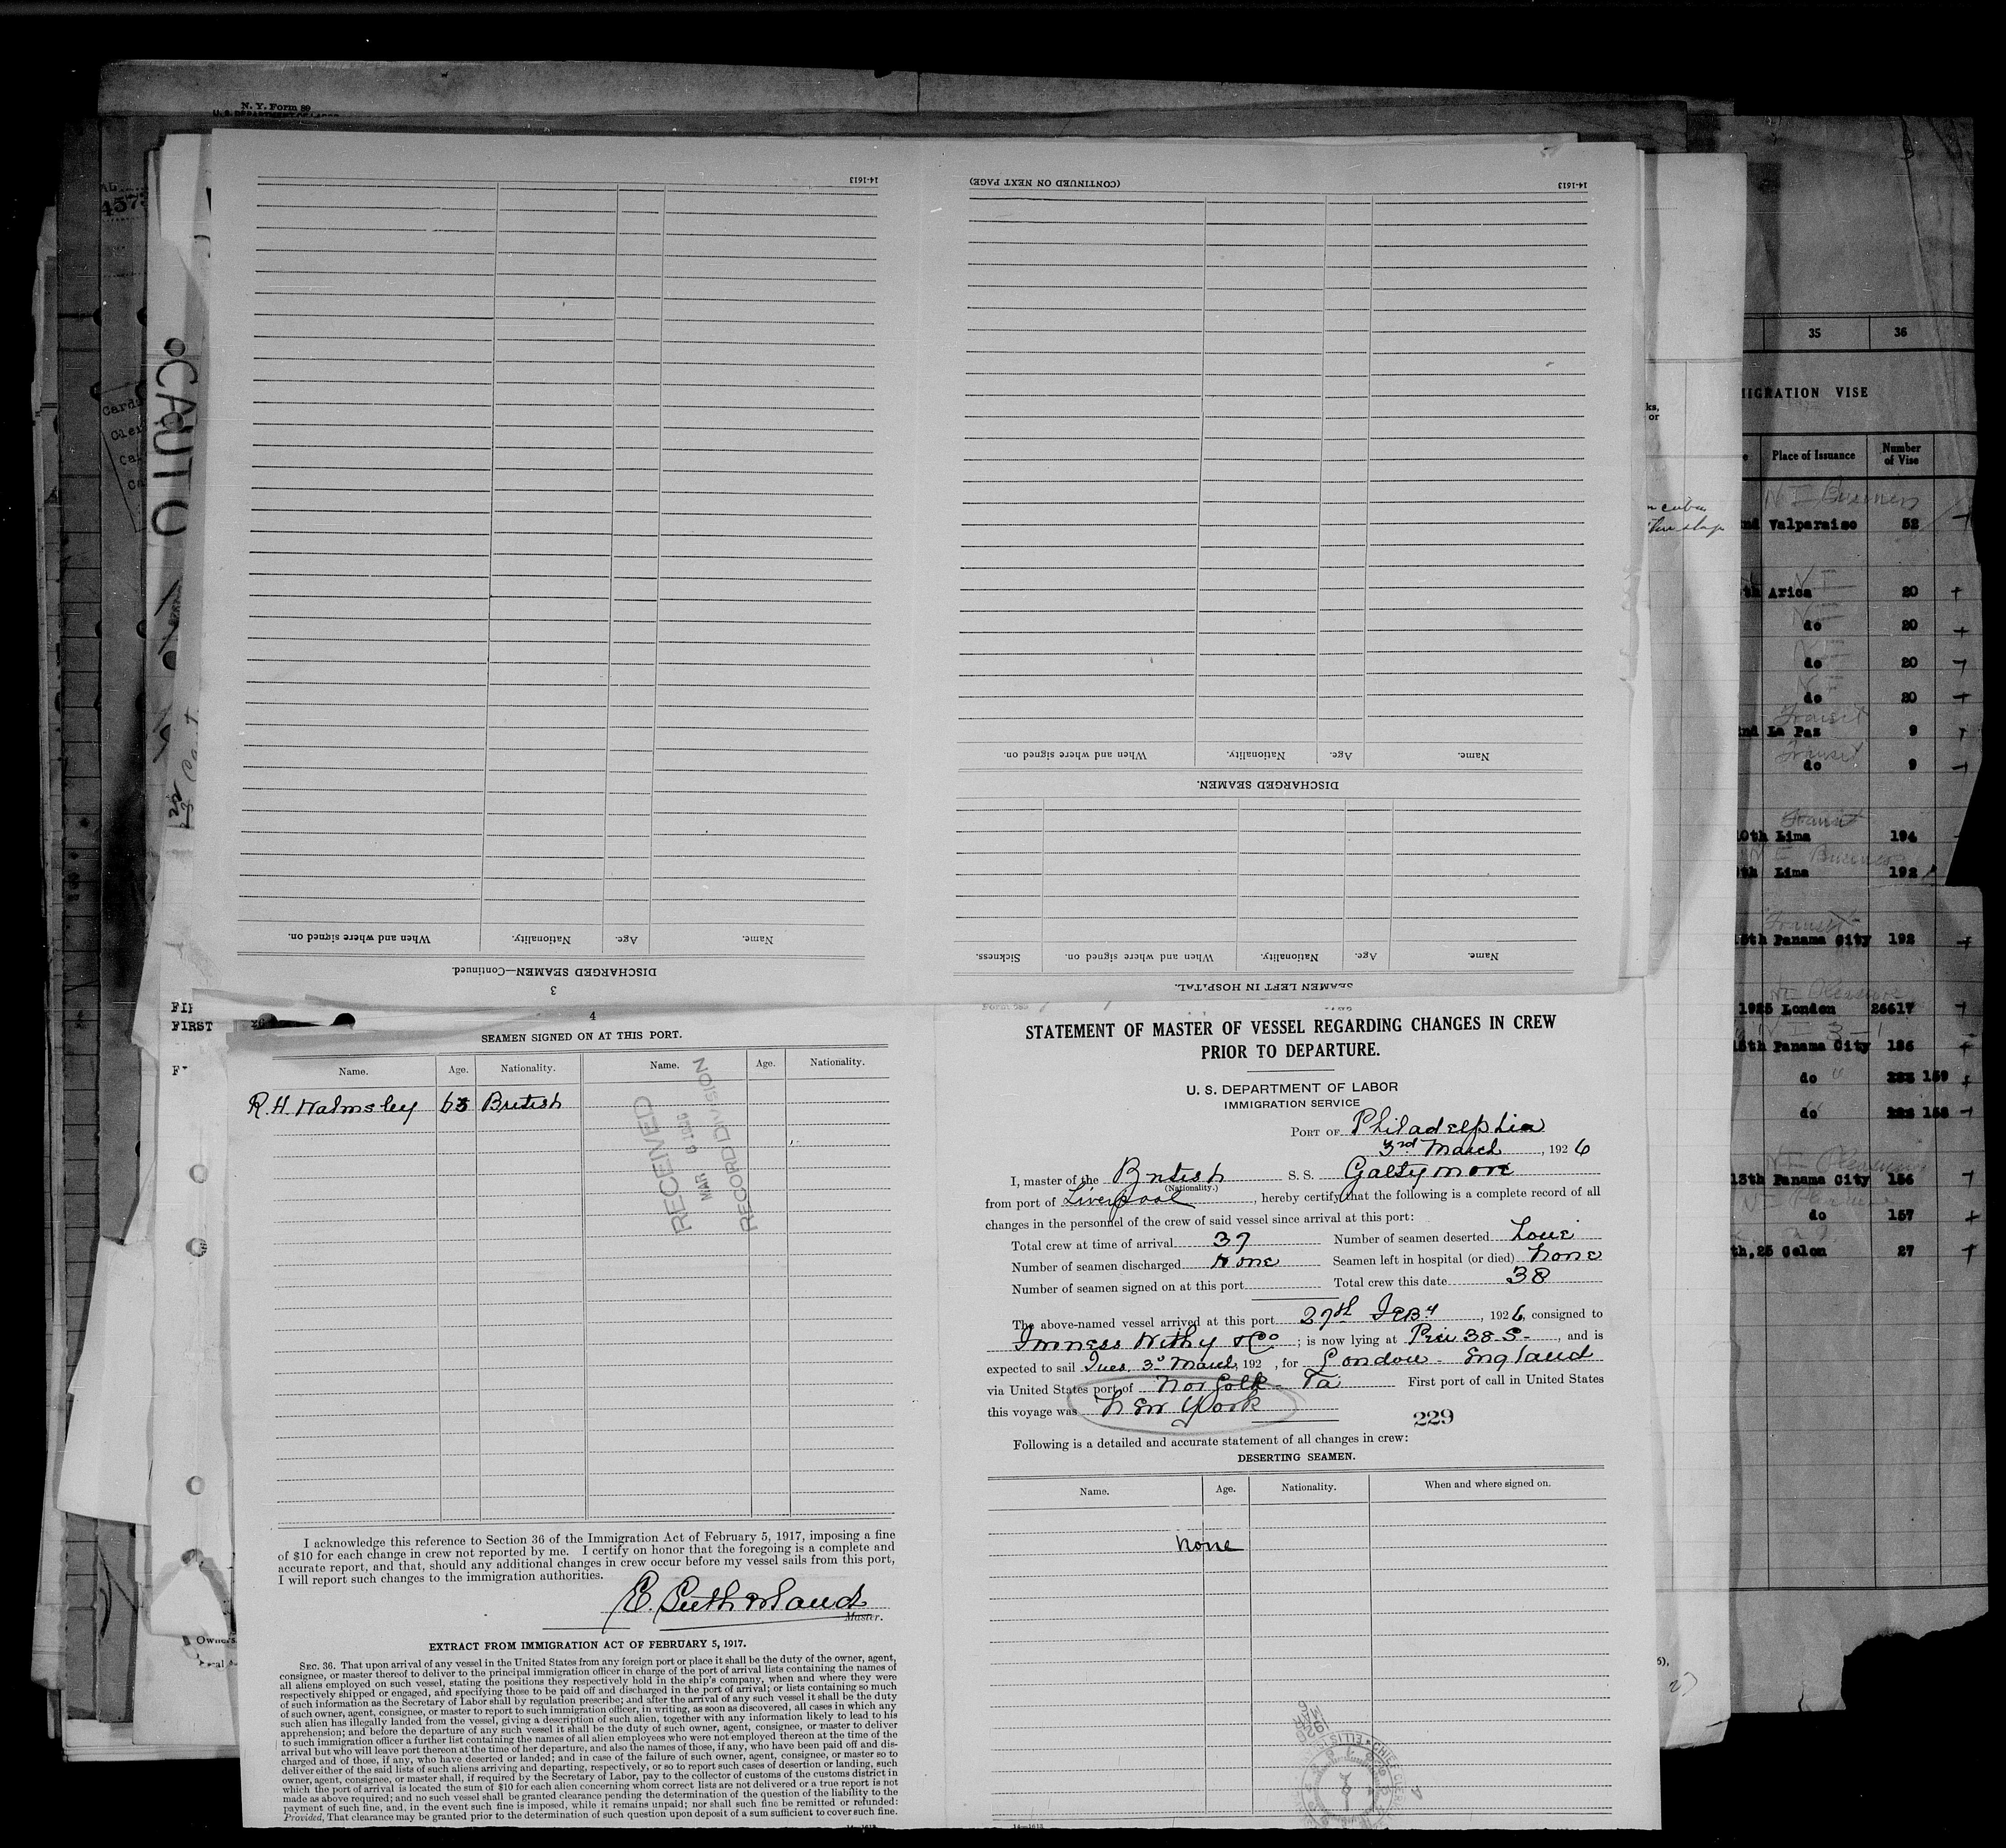 N. Y. Form 89
14-1613
3
DISCHARGED SEAMEN—Continued.
Name. Age. Nationality. When and where signed on.
SEAMEN LEFT IN HOSPITAL.
Name. Age. Nationality. When and where signed on. Sickness.
DISCHARGED SEAMEN.
Name. Age. Nationality. When and where signed on.
(CONTINUED ON NEXT PAGE)
14-1613
CAUTO
FIRST
4
SEAMEN SIGNED ON AT THIS PORT.
Name. Age. Nationality. Name. Age. Nationality.
R. H. Walmsley 63 British
RECEIVED
MAR 6 1926
RECORD DIVISION
I acknowledge this reference to Section 36 of the Immigration Act of February 5, 1917, imposing a fine
of $10 for each change in crew not reported by me. I certify on honor that the foregoing is a complete and
accurate report, and that, should any additional changes in crew occur before my vessel sails from this port,
I will report such changes to the immigration authorities.
E. Sutherland
Master.
EXTRACT FROM IMMIGRATION ACT OF FEBRUARY 5, 1917.
SEC. 36. That upon arrival of any vessel in the United States from any foreign port or place it shall be the duty of the owner, agent,
consignee, or master thereof to deliver to the principal immigration officer in charge of the port of arrival lists containing the names of
all aliens employed on such vessel, stating the positions they respectively hold in the ship's company, when and where they were
respectively shipped or engaged, and specifying those to be paid off and discharged in the port of arrival; or lists containing so much
of such information as the Secretary of Labor shall by regulation prescribe; and after the arrival of any such vessel it shall be the duty
of such owner, agent, consignee, or master to report to such immigration officer, in writing, as soon as discovered, all cases in which any
such alien has illegally landed from the vessel, giving a description of such alien, together with any information likely to lead to his
apprehension; and before the departure of any such vessel it shall be the duty of such owner, agent, consignee, or master to deliver
to such immigration officer a further list containing the names of all alien employees who were not employed thereon at the time of the
arrival but who will leave port thereon at the time of her departure, and also the names of those, if any, who have been paid off and dis-
charged and of those, if any, who have deserted or landed; and in case of the failure of such owner, agent, consignee, or master so to
deliver either of the said lists of such aliens arriving and departing, respectively, or so to report such cases of desertion or landing, such
owner, agent, consignee, or master, shall, if required by the Secretary of Labor, pay to the collector of customs of the customs district in
which the port of arrival is located the sum of $10 for each alien concerning whom correct lists are not delivered or a true report is not
made as above required; and no such vessel shall be granted clearance pending the determination of the question of the liability to the
payment of such fine, and, in the event such fine is imposed, while it remains unpaid; nor shall such fine be remitted or refunded:
Provided, That clearance may be granted prior to the determination of such question upon deposit of a sum sufficient to cover such fine.
STATEMENT OF MASTER OF VESSEL REGARDING CHANGES IN CREW
PRIOR TO DEPARTURE.
U. S. DEPARTMENT OF LABOR
IMMIGRATION SERVICE
PORT OF Philadelphia
3rd March, 1926
I, master of the British S. S. Galtymore
(Nationality.)
from port of Liverpool, hereby certify that the following is a complete record of all
changes in the personnel of the crew of said vessel since arrival at this port:
Total crew at time of arrival 37 Number of seamen deserted None
Number of seamen discharged None Seamen left in hospital (or died) None
Number of seamen signed on at this port Total crew this date 38
The above-named vessel arrived at this port 27th Feby, 1926, consigned to
Furness Withy & Co; is now lying at Pier 38 S-, and is
expected to sail Tues. 3d March, 192 , for London - England
via United States port of Norfolk - Va First port of call in United States
this voyage was New York
229
Following is a detailed and accurate statement of all changes in crew:
DESERTING SEAMEN.
Name. Age. Nationality. When and where signed on.
None
MAR
1926
35 36
MIGRATION VISE
Place of Issuance Number of Vise
Valparaiso 52
Arica 20
do 20
do 20
do 20
La Paz 9
do 9
10th Lima 194
Lima 192
Panama City 192
1925 London 26617
Panama City 186
do 159
do 158
13th Panama City 156
do 157
th,25 Colon 27